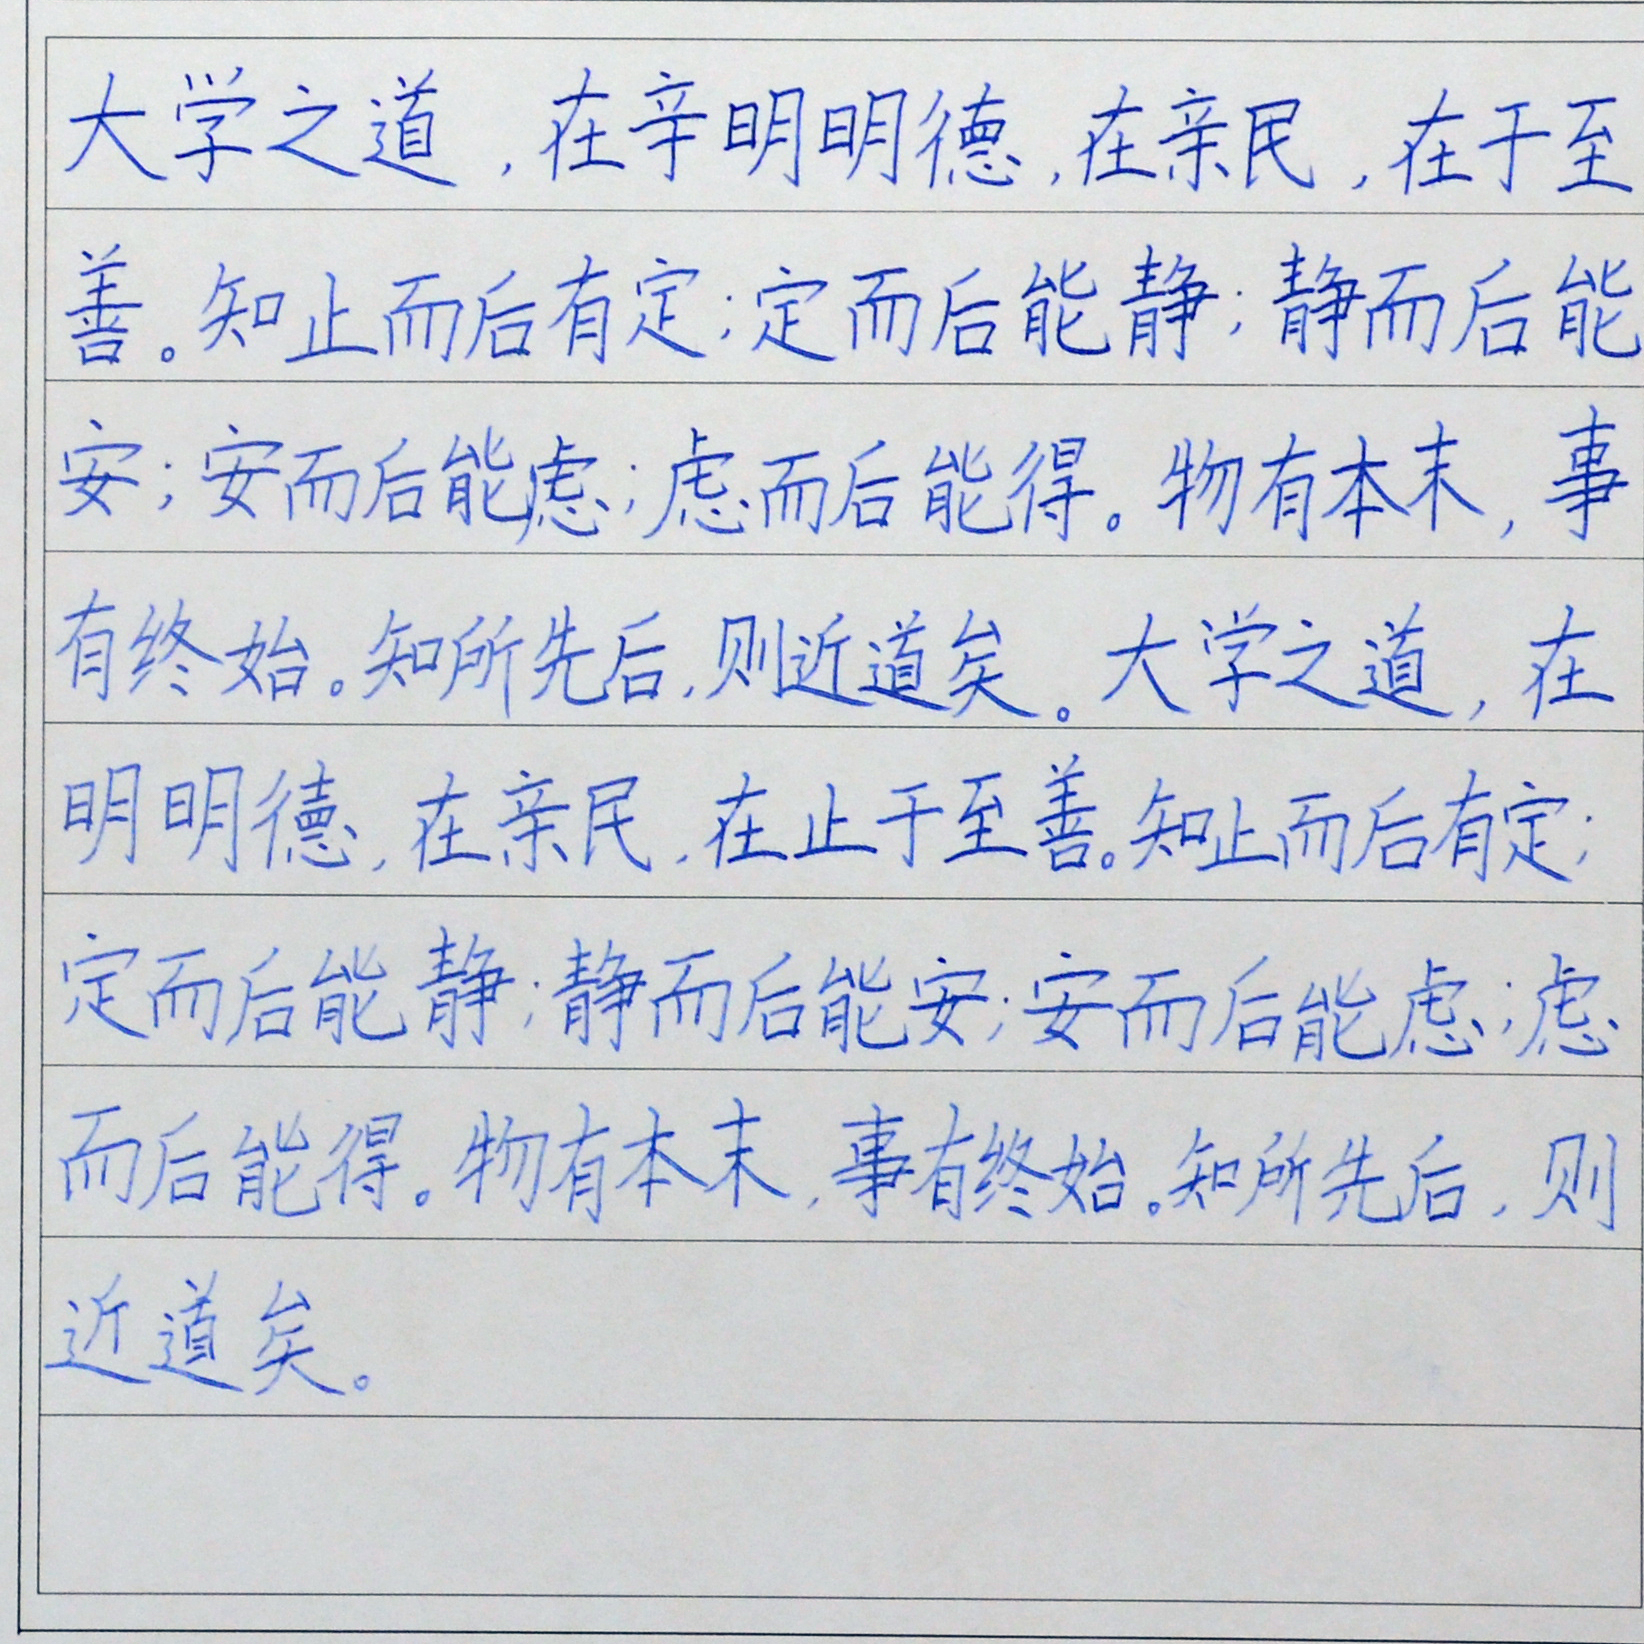 大学之道，在辛明明德，在亲民，在于至
善。知止而后有定；定而后能静；静而后能
安；安而后能虑；虑而后能得。物有本末，事
有终始。知所先后，则近道矣。大学之道，在
明明德，在亲民，在止于至善。知止而后有定；
定而后能静；静而后能安；安而后能虑；虑
而后能得。物有本末，事有终始。知所先后，则
近道矣。